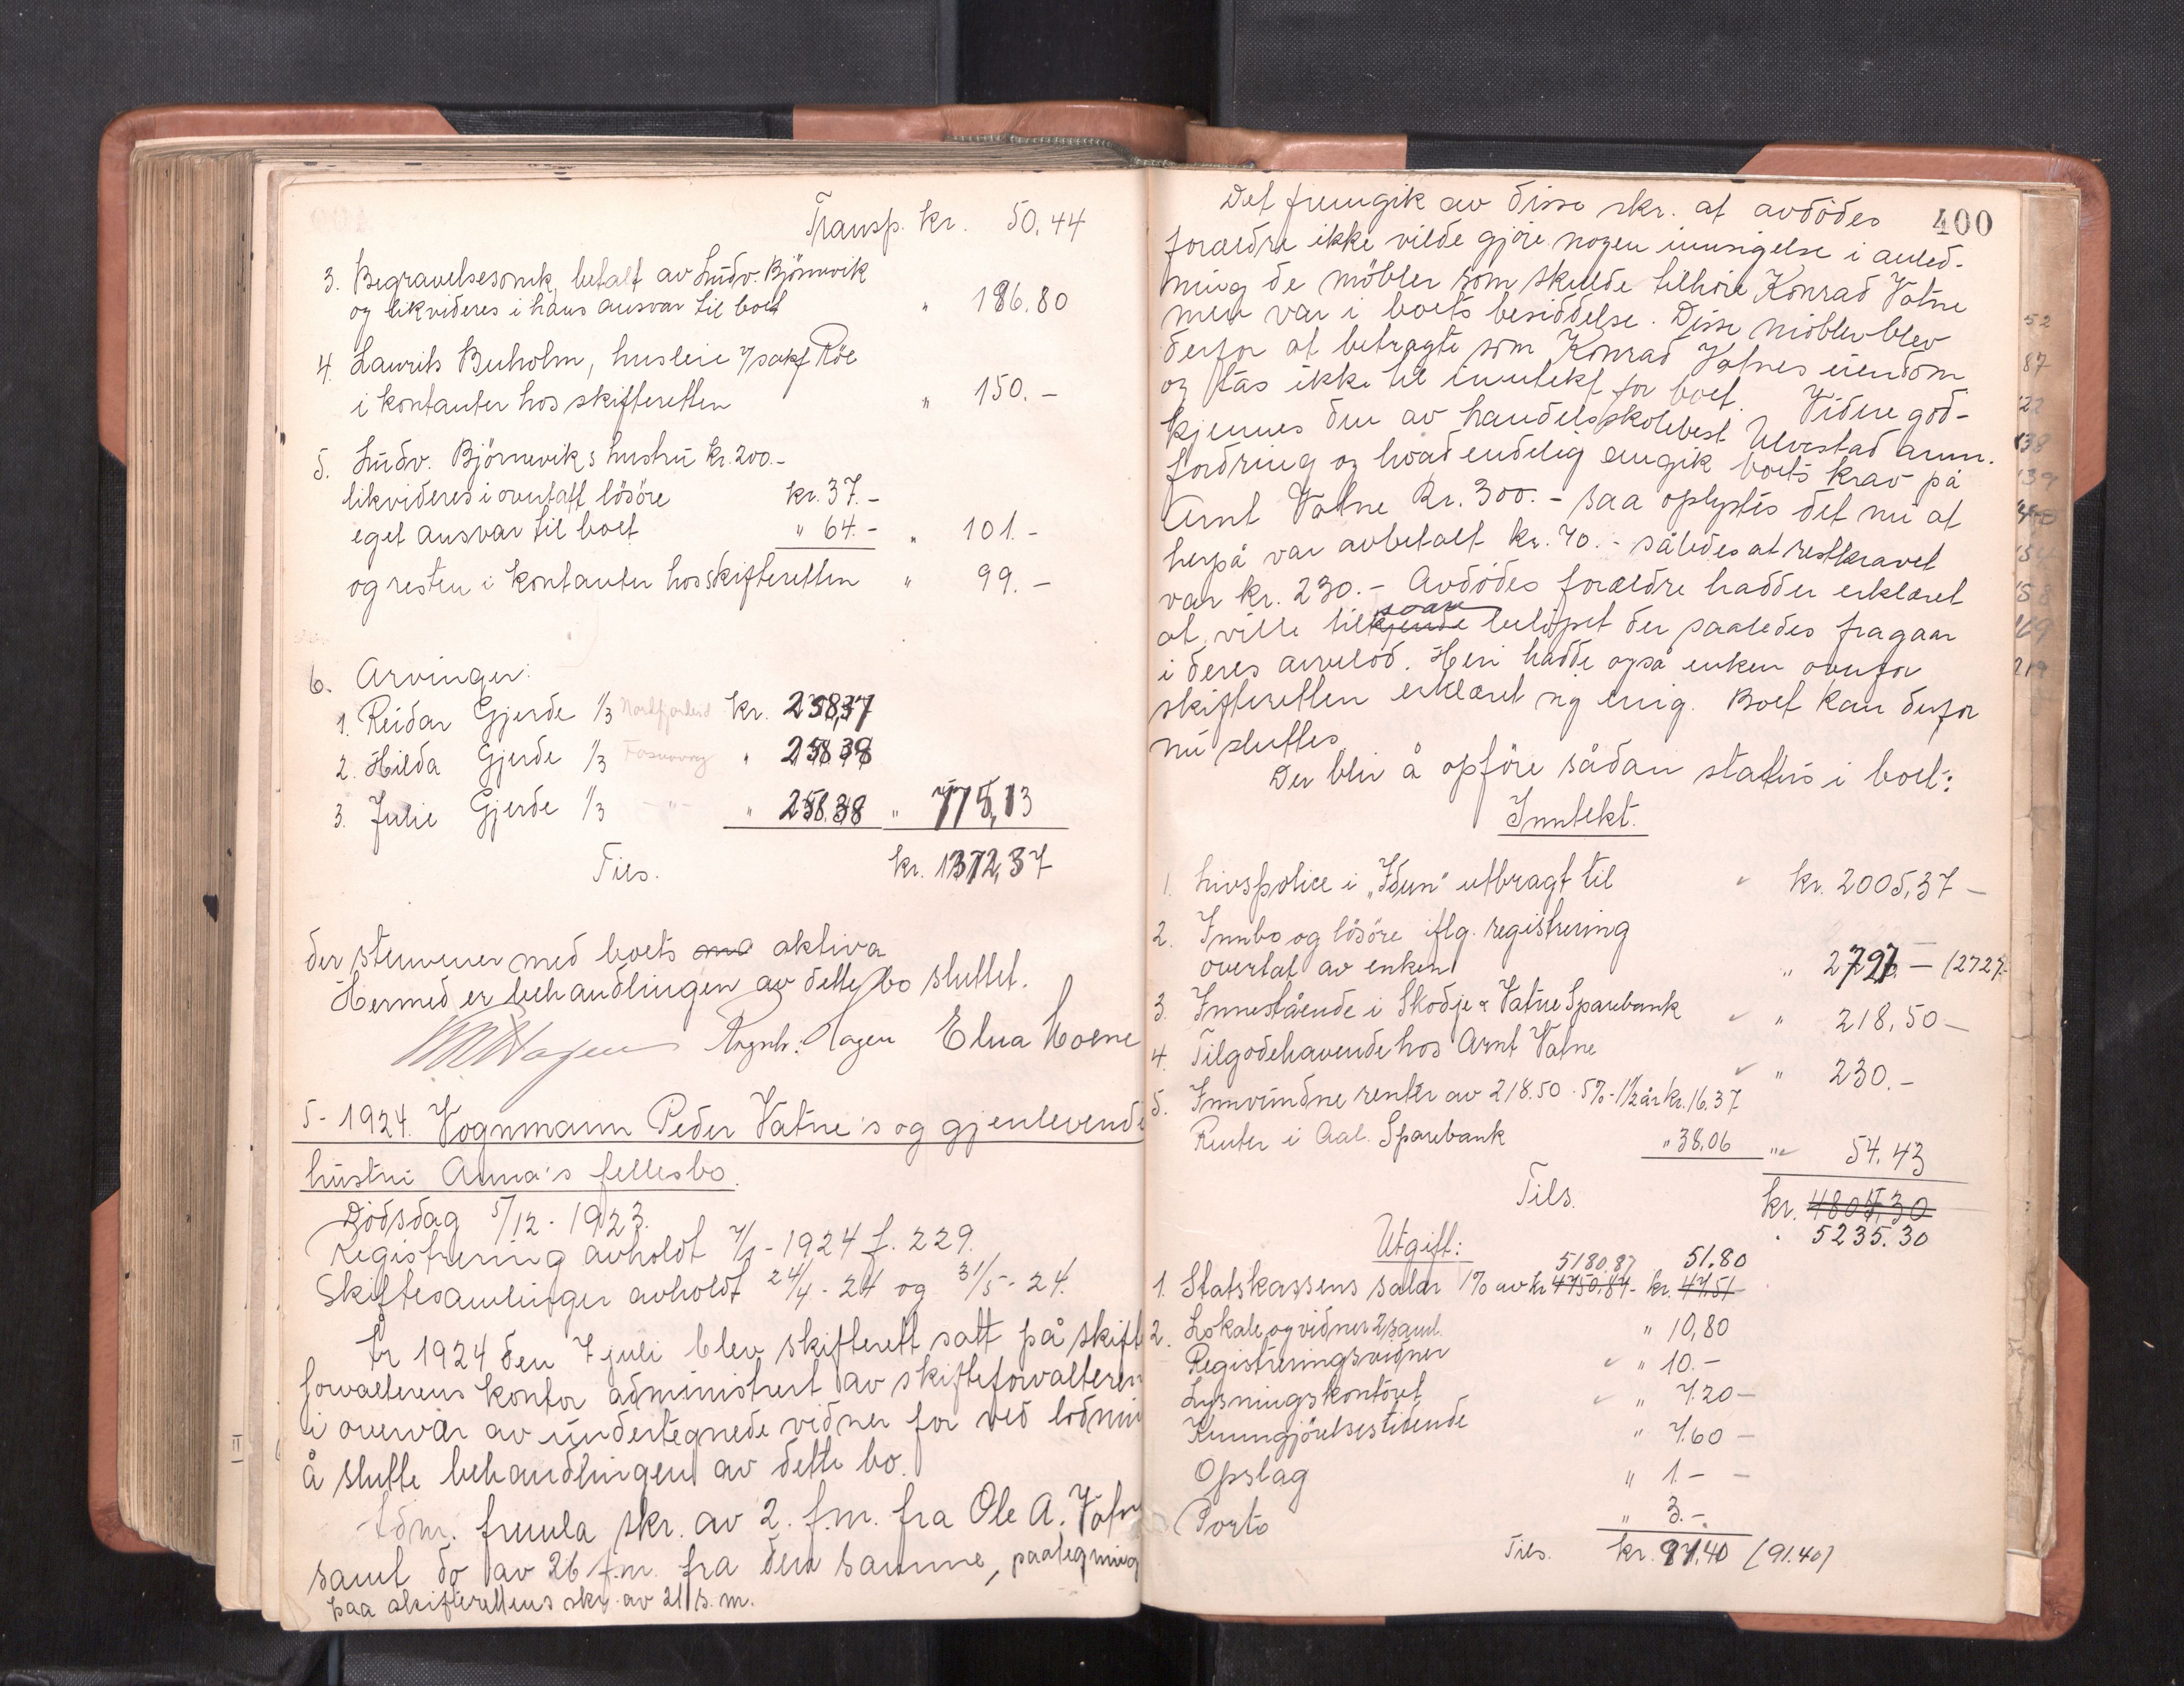 Transp. kr. 50,44
3. Begravelsesomk. betalt av Ludv. Björnevik
og likvideres i hans ansvar til boet " 186.80
4. Laurits Buholm, husleie v/sakf Röe
i kontanter hos skifteretten " 150.-
5. Ludv. Björneviks hustru kr. 200.-
likvideres i overtatt lösöre kr. 37.-
eget ansvar til boet " 64.- " 101.-
og resten i kontanter hos skifteretten " 99.-
6. Arvinger:
1. Reidar Gjerde 1/3 Nordfjordeid kr. 258,37
2. Hilda Gjerde 1/3 " 258.38
3. Julie Gjerde 1/3 -"- " 258.38 " 775,13
Tils. kr. 1372,37
der stemmer med boets aktiva
Hermed er behandlingen av dette bo sluttet.
Hagen Ragnh. Hagen Elna Moene
5-1924. Vognmann Peder Vatne's og gjenlevende
hustru Anna's fellesbo.
Dödsdag 5/12-1923.
Registrering avholdt 7/1-1924 f. 229.
Skiftesamlinger avholdt 24/4-24 og 31/5-24.
År 1924 den 7 juli blev skifterett satt på skift
forvalterens kontor administrert av skifteforvalteren
i overvær av undertegnede vidner for ved lodnin
å slutte behandlingen av dette bo.
Adm. fremla skr. av 2. f.m. fra Ole A. Vatne
samt do av 26 f.m. fra den samme, paategning
paa skifterettens skr. av 21/s.m.
400
Det fremgik av disse skr. at avdödes
forældre ikke vilde gjöre nogen innsigelse i anled-
ning de möbler som skulde tilhöre Konrad Vatne
men var i boets besiddelse. Disse möbler blev
derfor at betragte som Konrad Vatnes eiendom
og tas ikke til inntekt for boet. Videre god-
kjennes den av handelsskolebest. Ulvestad anm.
fordring og hvad endelig angik boets krav på
Arnt Vatne kr. 300.- saa oplystes det nu at
herpå var avbetalt kr. 70.- således at restkravet
var kr. 230.- Avdödes forældre hadde erklæret
svare
at ville tilkjende belöpet der saaledes fragaar
i deres arvelod. Heri hadde også enken overfor
skifteretten erklæret sig enig. Boet kan derfor
nu sluttes.
Der blir å opföre sådan status i boet:
Inntekt.
1. Livspolice i "Idun" utbragt til kr. 2005,37 -
2. Innbo og lösöre iflg. registrering
overtat av enken " 2727.- (2727.-
3. Innestående i Skodje & Vatne Sparebank " 218,50 -
4. Tilgodehavende hos Arnt Vatne " 230.-
5. Innvundne renter av 218.50 - 5% - 1 1/2 år kr. 16.37
Renter i Aal. Sparebank " 38.06 " 54.43
Tils. kr. 4804,30
" 5235.30
Utgift:
5180.87 51.80
1. Statskassens salær 1% av kr 4750.87 - kr. 47.51
2. Lokale og vidner 2 saml. " 10,80
Registreringsvidner " 10.-
Lysningskontoret " 7.20 -
Kunngjörelsestidende " 7.60 -
Opslag " 1.- -
Porto " 3.-
Tils. kr. 91.40 (91.40)
52
87
122
138
139
158
169
219